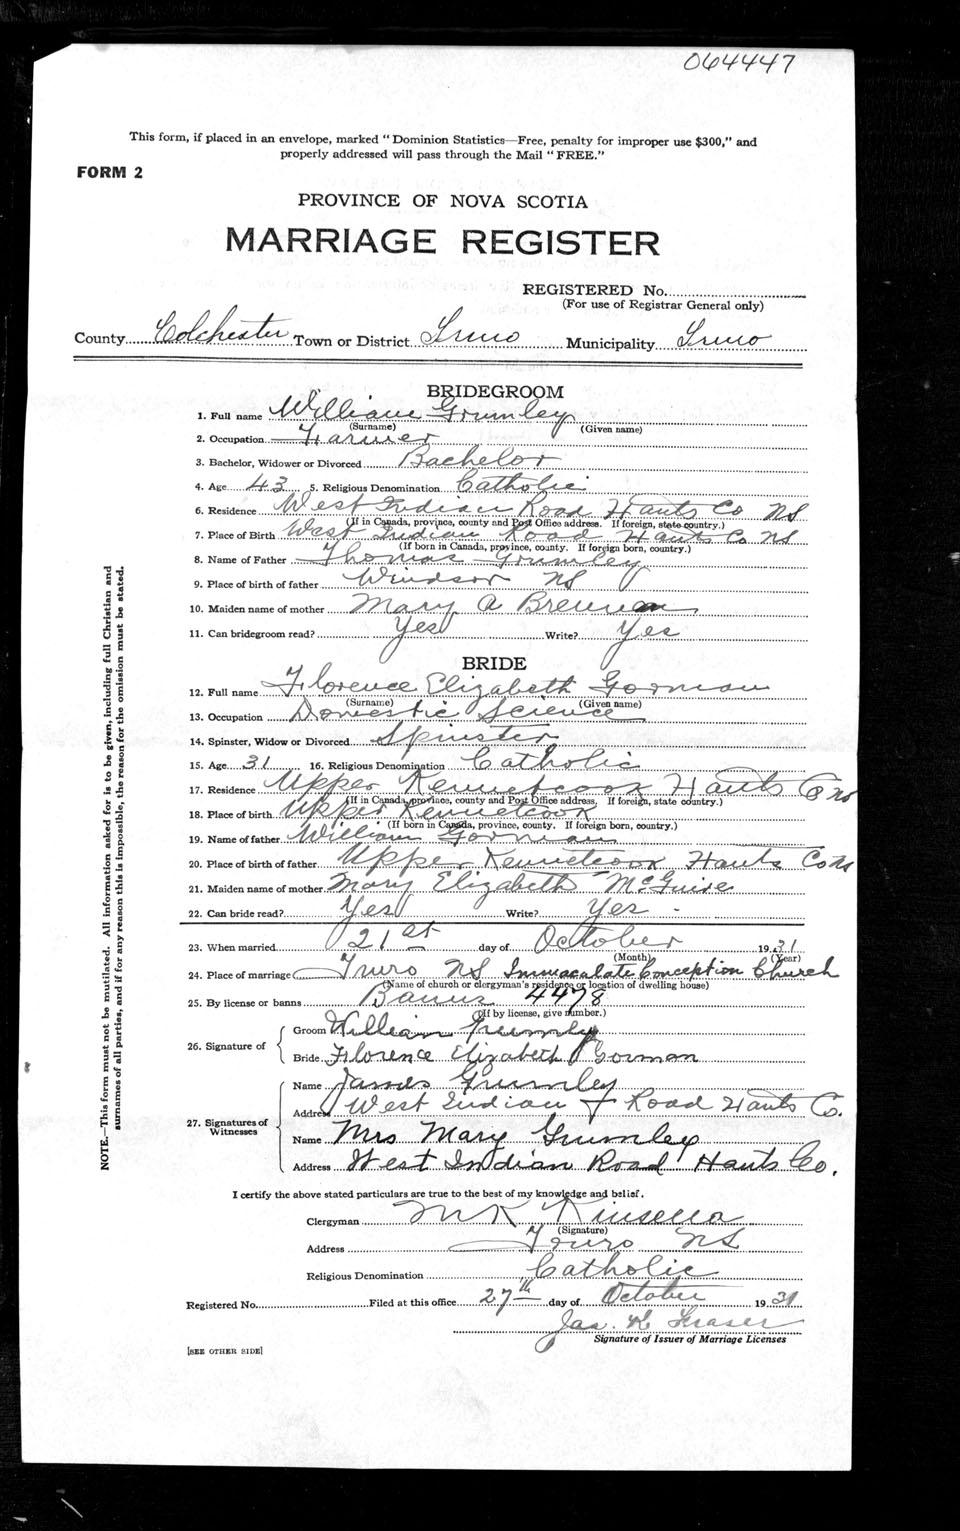 064447
This form, if placed in an envelope, marked "Dominion Statistics—Free, penalty for improper use $300," and
properly addressed will pass through the Mail "FREE."
FORM 2
PROVINCE OF NOVA SCOTIA
MARRIAGE REGISTER
REGISTERED No.
(For use of Registrar General only)
County Colchester Town or District Truro Municipality Truro
BRIDEGROOM
1. Full name William Grumley
(Surname) (Given name)
2. Occupation Farmer
3. Bachelor, Widower or Divorced Bachelor
4. Age 43 5. Religious Denomination Catholic
6. Residence West Indian Road Hants Co NS
(If in Canada, province, county and Post Office address. If foreign, state country.)
7. Place of Birth West Indian Road Hants Co NS
(If born in Canada, province, county. If foreign born, country.)
8. Name of Father Thomas Grumley
9. Place of birth of father Windsor NS
10. Maiden name of mother Mary A Brennan
11. Can bridegroom read? Yes Write? Yes
BRIDE
12. Full name Florence Elizabeth Gorman
(Surname) (Given name)
13. Occupation Domestic Science
14. Spinster, Widow or Divorced Spinster
15. Age 31 16. Religious Denomination Catholic
17. Residence Upper Kennetcook Hants Co NS
(If in Canada, province, county and Post Office address. If foreign, state country.)
18. Place of birth Upper Kennetcook
(If born in Canada, province, county. If foreign born, country.)
19. Name of father William Gorman
20. Place of birth of father Upper Kennetcook Hants Co NS
21. Maiden name of mother Mary Elizabeth McGuire
22. Can bride read? Yes Write? Yes -
23. When married 21st day of October 1931
(Month) (Year)
24. Place of marriage Truro NS Immaculate Conception Church
(Name of church or clergyman's residence or location of dwelling house)
25. By license or banns Banns 4478
(If by license, give number.)
26. Signature of
Groom William Grumley
Bride Florence Elizabeth Gorman
27. Signatures of Witnesses
Name James Grumley
Address West Indian Road Hants Co.
Name Mrs Mary Grumley
Address West Indian Road Hants Co.
I certify the above stated particulars are true to the best of my knowledge and belief.
Clergyman M K Kinsella
(Signature)
Address Truro NS
Religious Denomination Catholic
Registered No. Filed at this office 27th day of October 1931
Jas. K Fraser
Signature of Issuer of Marriage Licenses
[SEE OTHER SIDE]
NOTE.—This form must not be mutilated. All information asked for is to be given, including full Christian and
surnames of all parties, and if for any reason this is impossible, the reason for the omission must be stated.